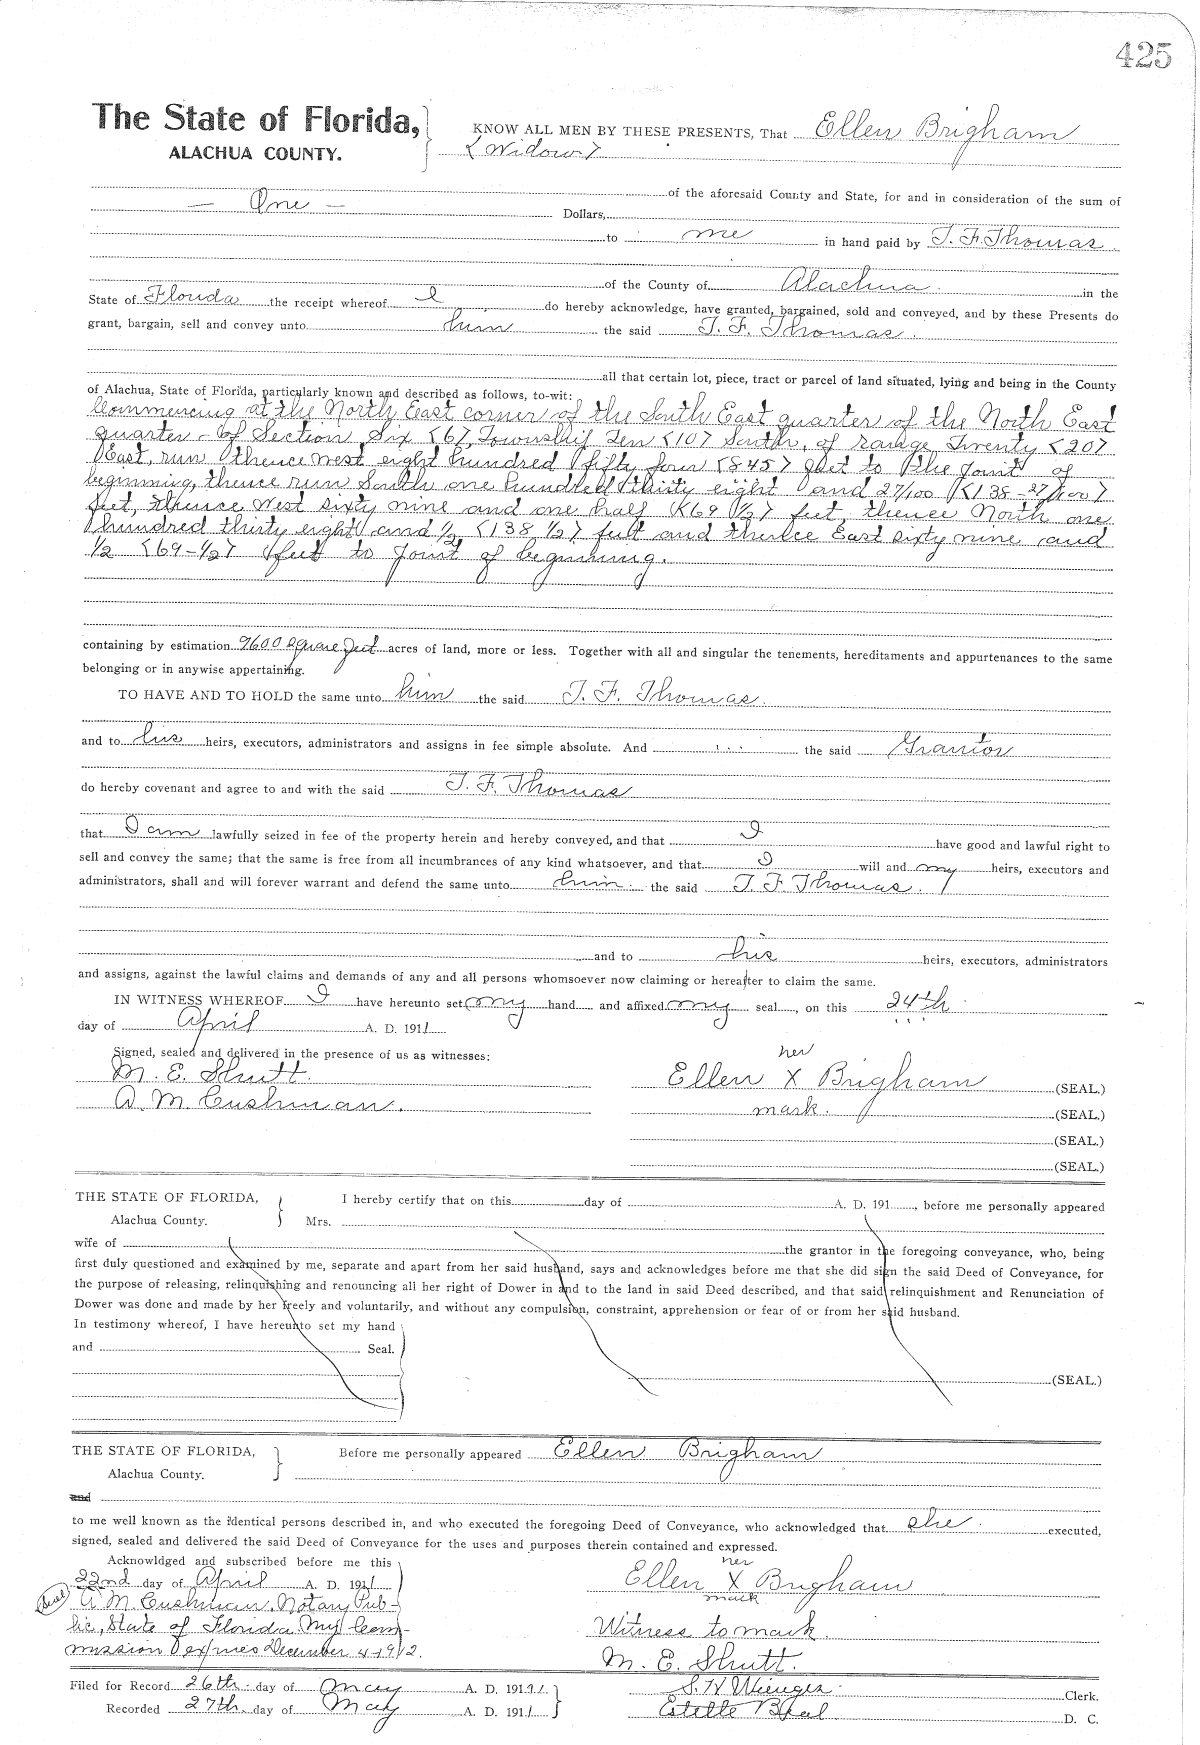 425
The State of Florida,
ALACHUA COUNTY.
KNOW ALL MEN BY THESE PRESENTS, That Ellen Brigham
(Widow)
of the aforesaid County and State, for and in consideration of the sum of
— One — Dollars,
to me in hand paid by T. F. Thomas
of the County of Alachua in the
State of Florida the receipt whereof I do hereby acknowledge, have granted, bargained, sold and conveyed, and by these Presents do
grant, bargain, sell and convey unto him the said T. F. Thomas.
all that certain lot, piece, tract or parcel of land situated, lying and being in the County
of Alachua, State of Florida, particularly known and described as follows, to-wit:
Commencing at the North East corner of the South East quarter of the North East
quarter - of Section Six (6), Township Ten (10) South, of range Twenty (20)
East, run thence west eight hundred fifty four (845) feet to the point of
beginning, thence run South one hundred thirty eight and 27/100 (138-27/100)
feet, thence West sixty nine and one half (69 1/2) feet, thence North one
hundred thirty eight and 1/2 (138 1/2) feet and thence East sixty nine and
1/2 (69-1/2) feet to point of beginning.
containing by estimation 9600 square feet acres of land, more or less. Together with all and singular the tenements, hereditaments and appurtenances to the same
belonging or in anywise appertaining.
TO HAVE AND TO HOLD the same unto him the said T. F. Thomas.
and to his heirs, executors, administrators and assigns in fee simple absolute. And . . . the said Grantor
do hereby covenant and agree to and with the said T. F. Thomas
that I am lawfully seized in fee of the property herein and hereby conveyed, and that I have good and lawful right to
sell and convey the same; that the same is free from all incumbrances of any kind whatsoever, and that I will and my heirs, executors and
administrators, shall and will forever warrant and defend the same unto him the said T. F. Thomas.
and to his heirs, executors, administrators
and assigns, against the lawful claims and demands of any and all persons whomsoever now claiming or hereafter to claim the same.
IN WITNESS WHEREOF I have hereunto set my hand and affixed my seal, on this 24th
day of April A. D. 1911
Signed, sealed and delivered in the presence of us as witnesses:
her
M. E. Shutt. Ellen X Brigham (SEAL.)
A. M. Cushman. mark. (SEAL.)
(SEAL.)
(SEAL.)
THE STATE OF FLORIDA, I hereby certify that on this day of A. D. 191 , before me personally appeared
Alachua County. Mrs.
wife of the grantor in the foregoing conveyance, who, being
first duly questioned and examined by me, separate and apart from her said husband, says and acknowledges before me that she did sign the said Deed of Conveyance, for
the purpose of releasing, relinquishing and renouncing all her right of Dower in and to the land in said Deed described, and that said relinquishment and Renunciation of
Dower was done and made by her freely and voluntarily, and without any compulsion, constraint, apprehension or fear of or from her said husband.
In testimony whereof, I have hereunto set my hand
and Seal.
(SEAL.)
THE STATE OF FLORIDA, Before me personally appeared Ellen Brigham
Alachua County.
and
to me well known as the identical persons described in, and who executed the foregoing Deed of Conveyance, who acknowledged that she executed,
signed, sealed and delivered the said Deed of Conveyance for the uses and purposes therein contained and expressed.
Acknowldged and subscribed before me this
her
22nd day of April A. D. 1911 Ellen X Brigham
mark
(Seal) A. M. Cushman, Notary Pub-
lic, State of Florida My Com- Witness to mark.
mission expires December 4-1912. M. E. Shutt.
Filed for Record 26th day of May A. D. 1911 S. H. Wienges Clerk.
Recorded 27th day of May A. D. 1911 Estelle D. C.